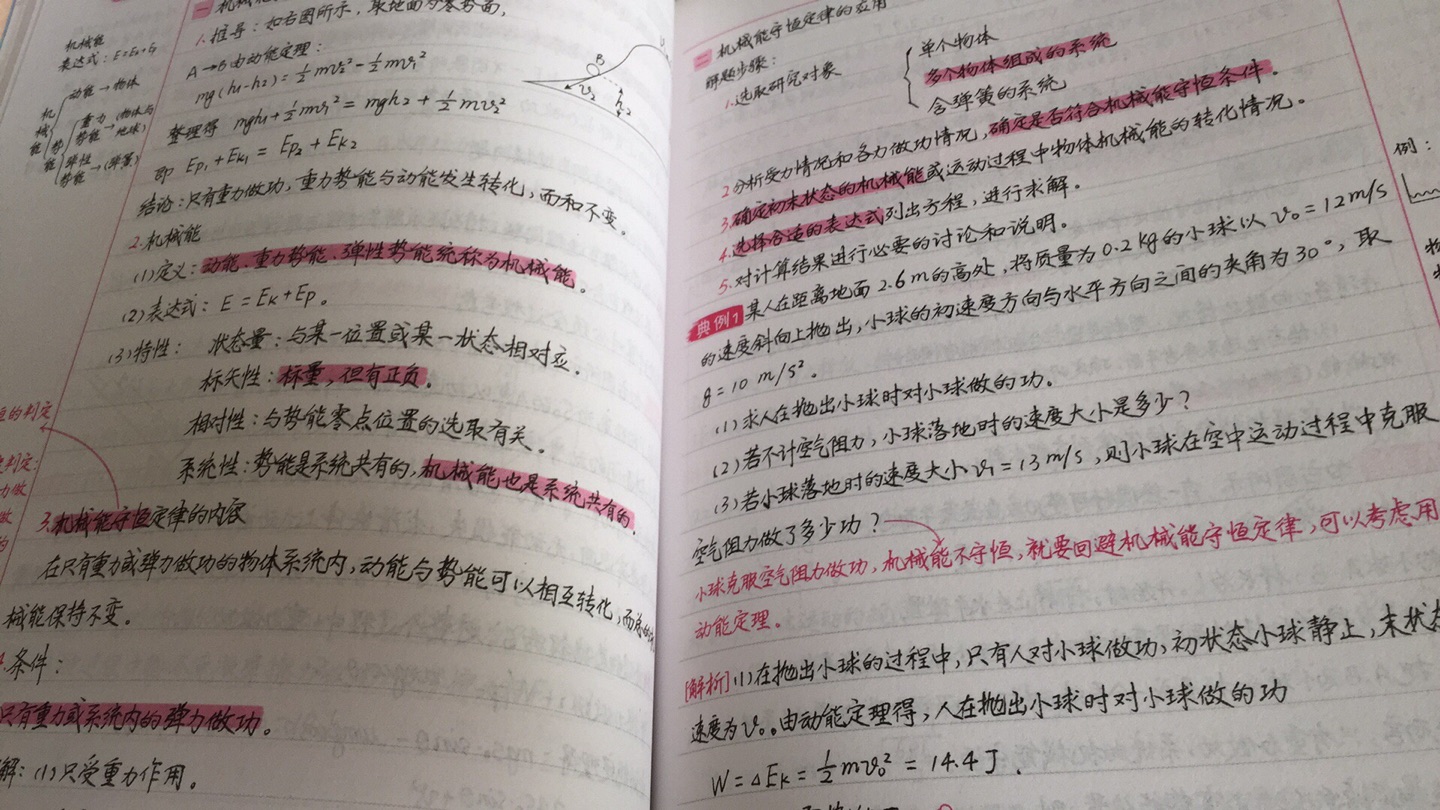 机械能
表达式：E=Ek+Ep
机械能
动能→物体
势能
重力势能→(物体与地球)
弹性势能→(弹簧)
一 机械能
1.推导：如右图所示，取地面为零势面，
A→B由动能定理：
mg(h1-h2)=½mv2²-½mv1²
整理得 mgh1+½mv1²=mgh2+½mv2²
即 Ep1+Ek1=Ep2+Ek2
B
v2
h2
结论：只有重力做功，重力势能与动能发生转化，而和不变。
2.机械能
(1)定义：动能、重力势能、弹性势能统称为机械能。
(2)表达式：E=Ek+Ep。
(3)特性： 状态量：与某一位置或某一状态相对应。
标矢性：标量，但有正负。
相对性：与势能零点位置的选取有关。
系统性：势能是系统共有的，机械能也是系统共有的。
的判定
判定：
力做
做
的
3.机械能守恒定律的内容
在只有重力或弹力做功的物体系统内，动能与势能可以相互转化，而总的
械能保持不变。
条件：
只有重力或系统内的弹力做功。
解：(1)只受重力作用。
二 机械能守恒定律的应用
解题步骤：
1.选取研究对象
单个物体
多个物体组成的系统
含弹簧的系统
2分析受力情况和各力做功情况，确定是否符合机械能守恒条件。
3.确定初末状态的机械能或运动过程中物体机械能的转化情况。
4.选择合适的表达式列出方程，进行求解。
5.对计算结果进行必要的讨论和说明。
典例1 某人在距离地面2.6m的高处，将质量为0.2kg的小球以v0=12m/s
的速度斜向上抛出，小球的初速度方向与水平方向之间的夹角为30°，取
g=10 m/s²。
(1)求人在抛出小球时对小球做的功。
(2)若不计空气阻力，小球落地时的速度大小是多少？
(3)若小球落地时的速度大小v1=13m/s，则小球在空中运动过程中克服
空气阻力做了多少功？
小球克服空气阻力做功，机械能不守恒，就要回避机械能守恒定律，可以考虑用
动能定理。
[解析](1)在抛出小球的过程中，只有人对小球做功，初状态小球静止，末状态
速度为v0。由动能定理得，人在抛出小球时对小球做的功
W=ΔEk=½mv0²=14.4J.
例：